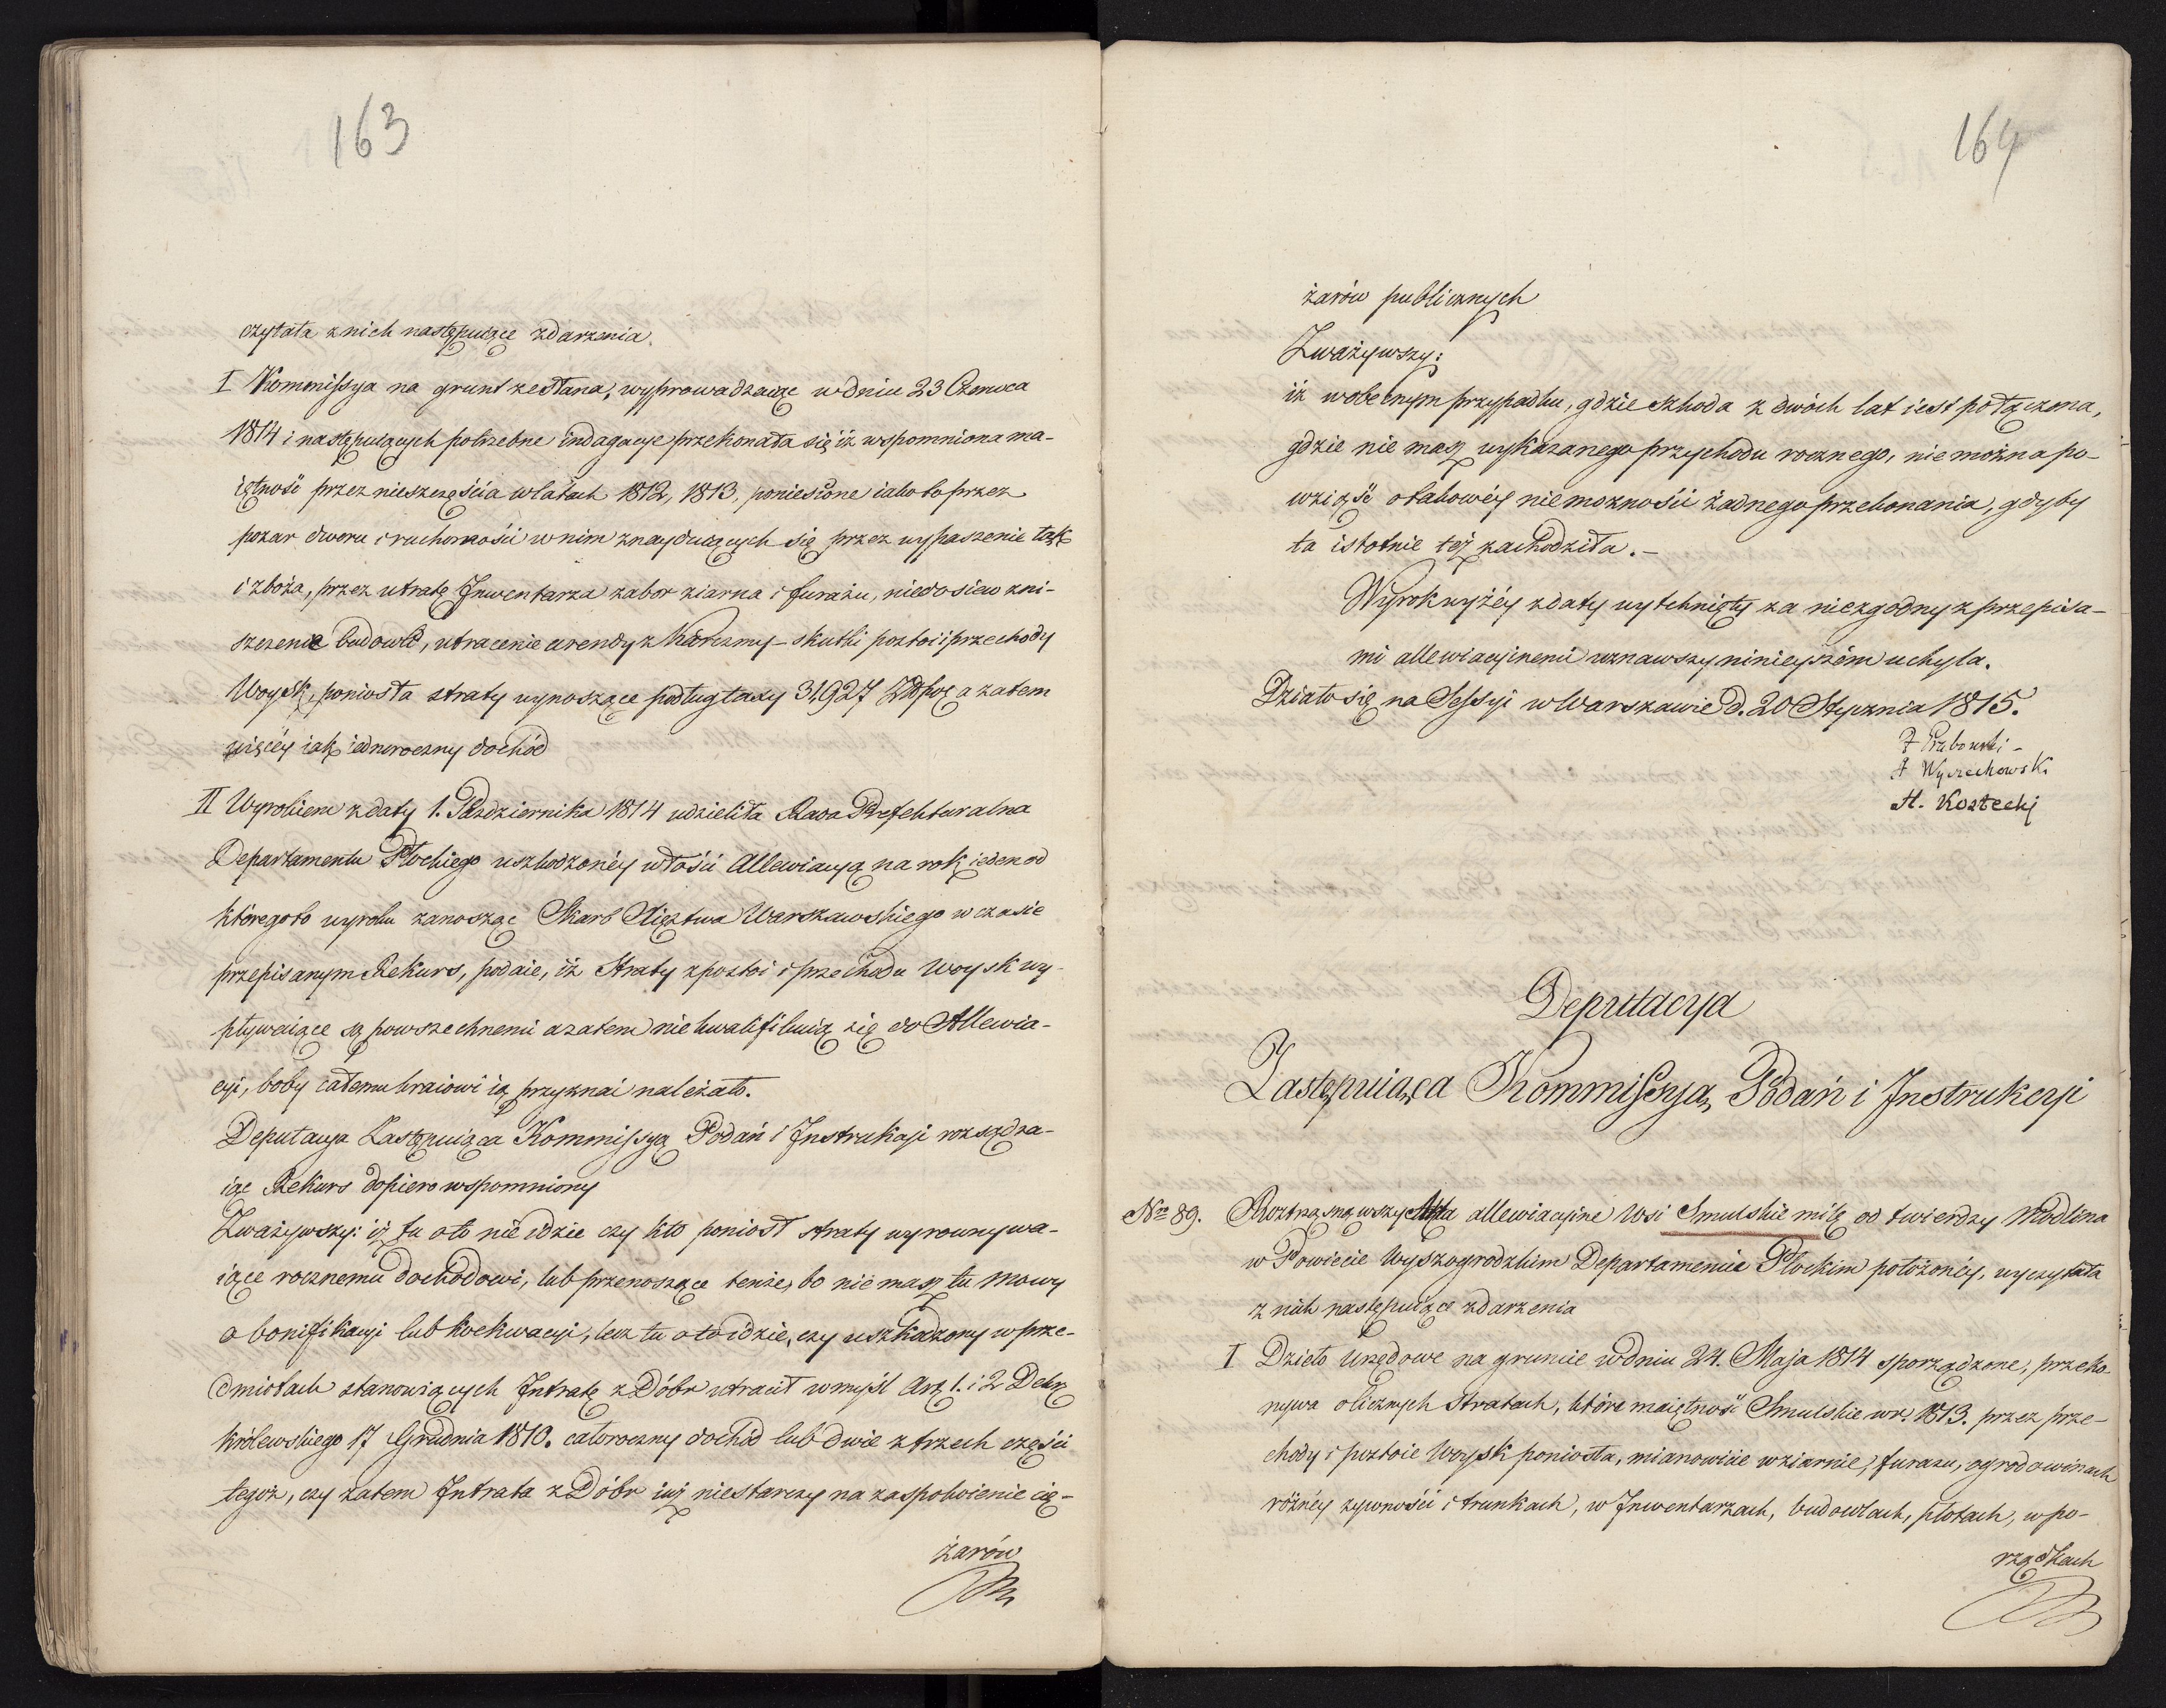 163
czytała z nich następuiące zdarzenia.
I Kommissya na grunt zesłana, wyprowadzaiąc w dniu 23 Czerwca
1814 i następuiących potrzebne indagacye przekonała się iż wspomniona ma-
iętność przez nieszczęścia w latach 1812, 1813, poniesione iako to przez
pozar dworu i ruchomości w nim znayduiących się przez wypaszenie łąk
i zboża, przez utratę Inwentarza zabor ziarna i furażu, niedosiew zni-
szczenie budowli, utracenie arendy z Karczmy – skutki postoi i przechody
Woysk, poniosła straty wynoszące podług taxy 31,927 Złłpol a zatem
więcéy iak iednoroczny dochód
II Wyrokiem z daty 1. Pazdziernika 1814 udzieliła Rada Prefekturalna
Departamentu Płockiego uszkodzonéy włości Allewiacyą na rok ieden od
którego to wyroku zanosząc Skarb Xięztwa Warszawskiego w czasie
przepisanym Rekurs, podaie, iż Straty z postoi i przechodu Woysk wy-
pływaiące są powszechnemi a zatem nie kwalifikuią się do Allewia-
cyi, boby całemu kraiowi ią przyznai należało.
Deputacya Zastępuiąca Kommissyą Podań i Instrukcyi rozsądza-
iąc Rekurs dopiero wspomniony
Zważywszy: iż tu o to nie idzie czy kto poniosł straty wyrownywa-
iące rocznemu dochodowi, lub przenoszące tenże, bo nie masz tu mowy
o bonifikacyi lub koekwacyi, lecz tu o to idzie, czy uszkodzony w prze-
dmiotach stanowiących Intratę z Dóbr utracił w myśl Art. 1. i 2 Dekr
królewskiego 17 Grudnia 1810. całoroczny dochód lub dwie z trzech części
tegoż, czy zatem Intrata z Dóbr iuż niestarczy na zaspokoienie cię-
żarów
164
żarów publicznych
Zważywszy:
iż w obecnym przypadku, gdzie szkoda z dwóch lat iest połączona,
gdzie nie masz wykazanego przychodu rocznego, nie można po-
wziąść o takowéy niemozności żadnego przekonania, gdyby
ta istotnie też zachodziła. –
Wyrok wyżéy z daty wytchnięty za niezgodny z przepisa-
mi allewiacyinemi uznawszy ninieyszém uchyla.
Działo się na Sessyi w Warszawie d. 20 Stycznia 1815.
Wyczechowski
H. Kostecki
Deputacya
Zastępuiąca Kommissyą Podań i Instrukcyi
Nro 89. Roztrząsnąwszy Akta allewiacyine Wsi Smulskie milę od twierdzy Modlina
w Powiecie Wyszogrodzkim Departamencie Płockim położonéy, wyczytała
z nich następuiące zdarzenia
I Dzieło Urzędowe na gruncie w dniu 24. Maja 1814 sporządzone, przeko-
nywa o licznych Stratach, które maiętność Smulskie w r. 1813. przez prze-
chody i postoie Woysk poniosła, mianowicie w ziarnie, furazu, ogrodowinach
różnéy zywności i trunkach, w Inwentarzach, budowlach, płotach, w po-
rządkach